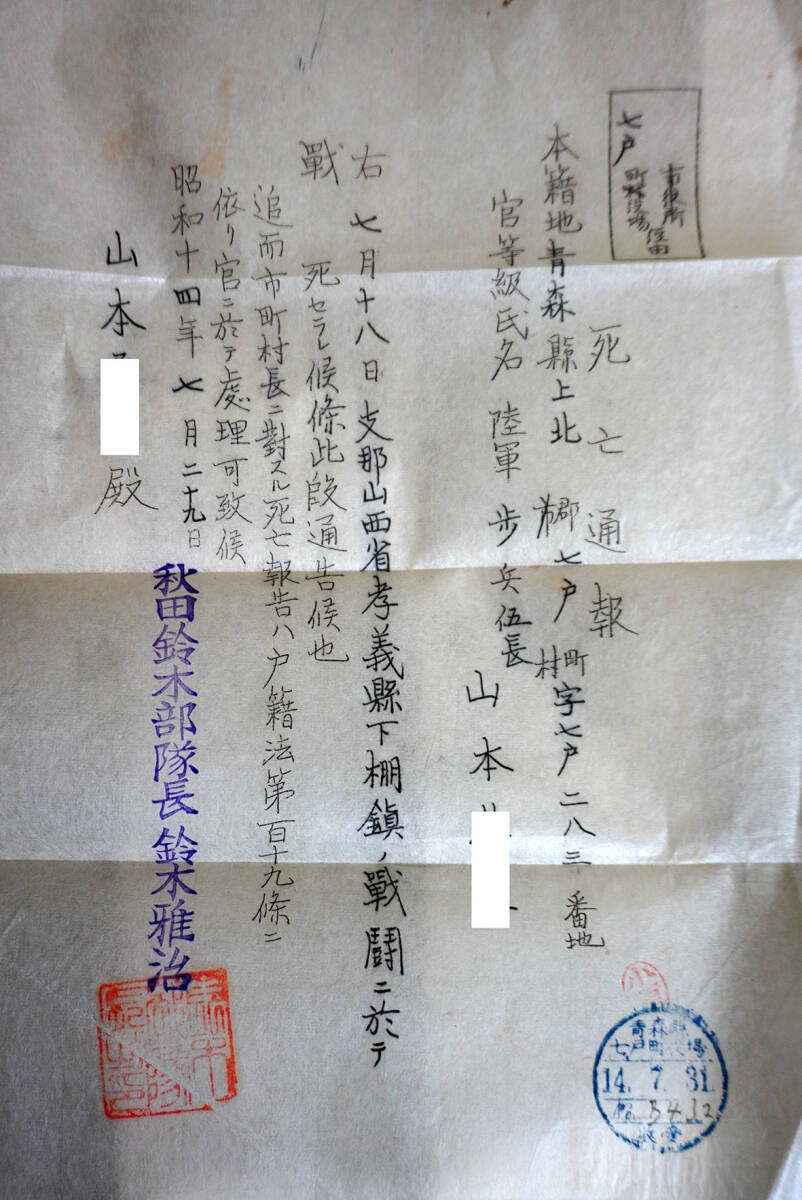 七戸 市役所 町村役場 経由
死亡通報
本籍地青森縣上北郡七戸町村字七戸二八三番地
官等級氏名 陸軍歩兵伍長 山本
右七月十八日支那山西省孝義縣下棚鎮ノ戰鬪ニ於テ
戰死セラレ候條此段通告候也
追而市町村長ニ對スル死亡報告ハ戸籍法第百十九條ニ
依リ官ニ於テ處理可致候
昭和十四年七月二十九日
秋田鈴木部隊長鈴木雅治
山本 殿
青森縣
七戸町役場
14.7.31
収受